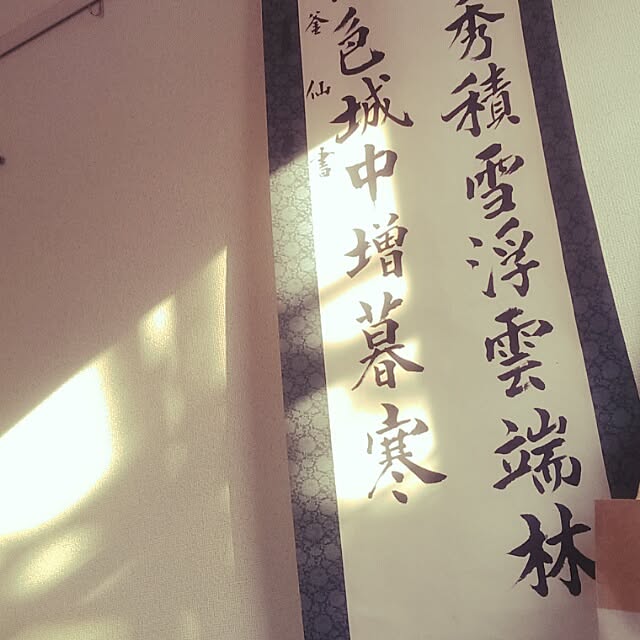 秀積雪浮雲端林
色城中増暮寒
釜仙書